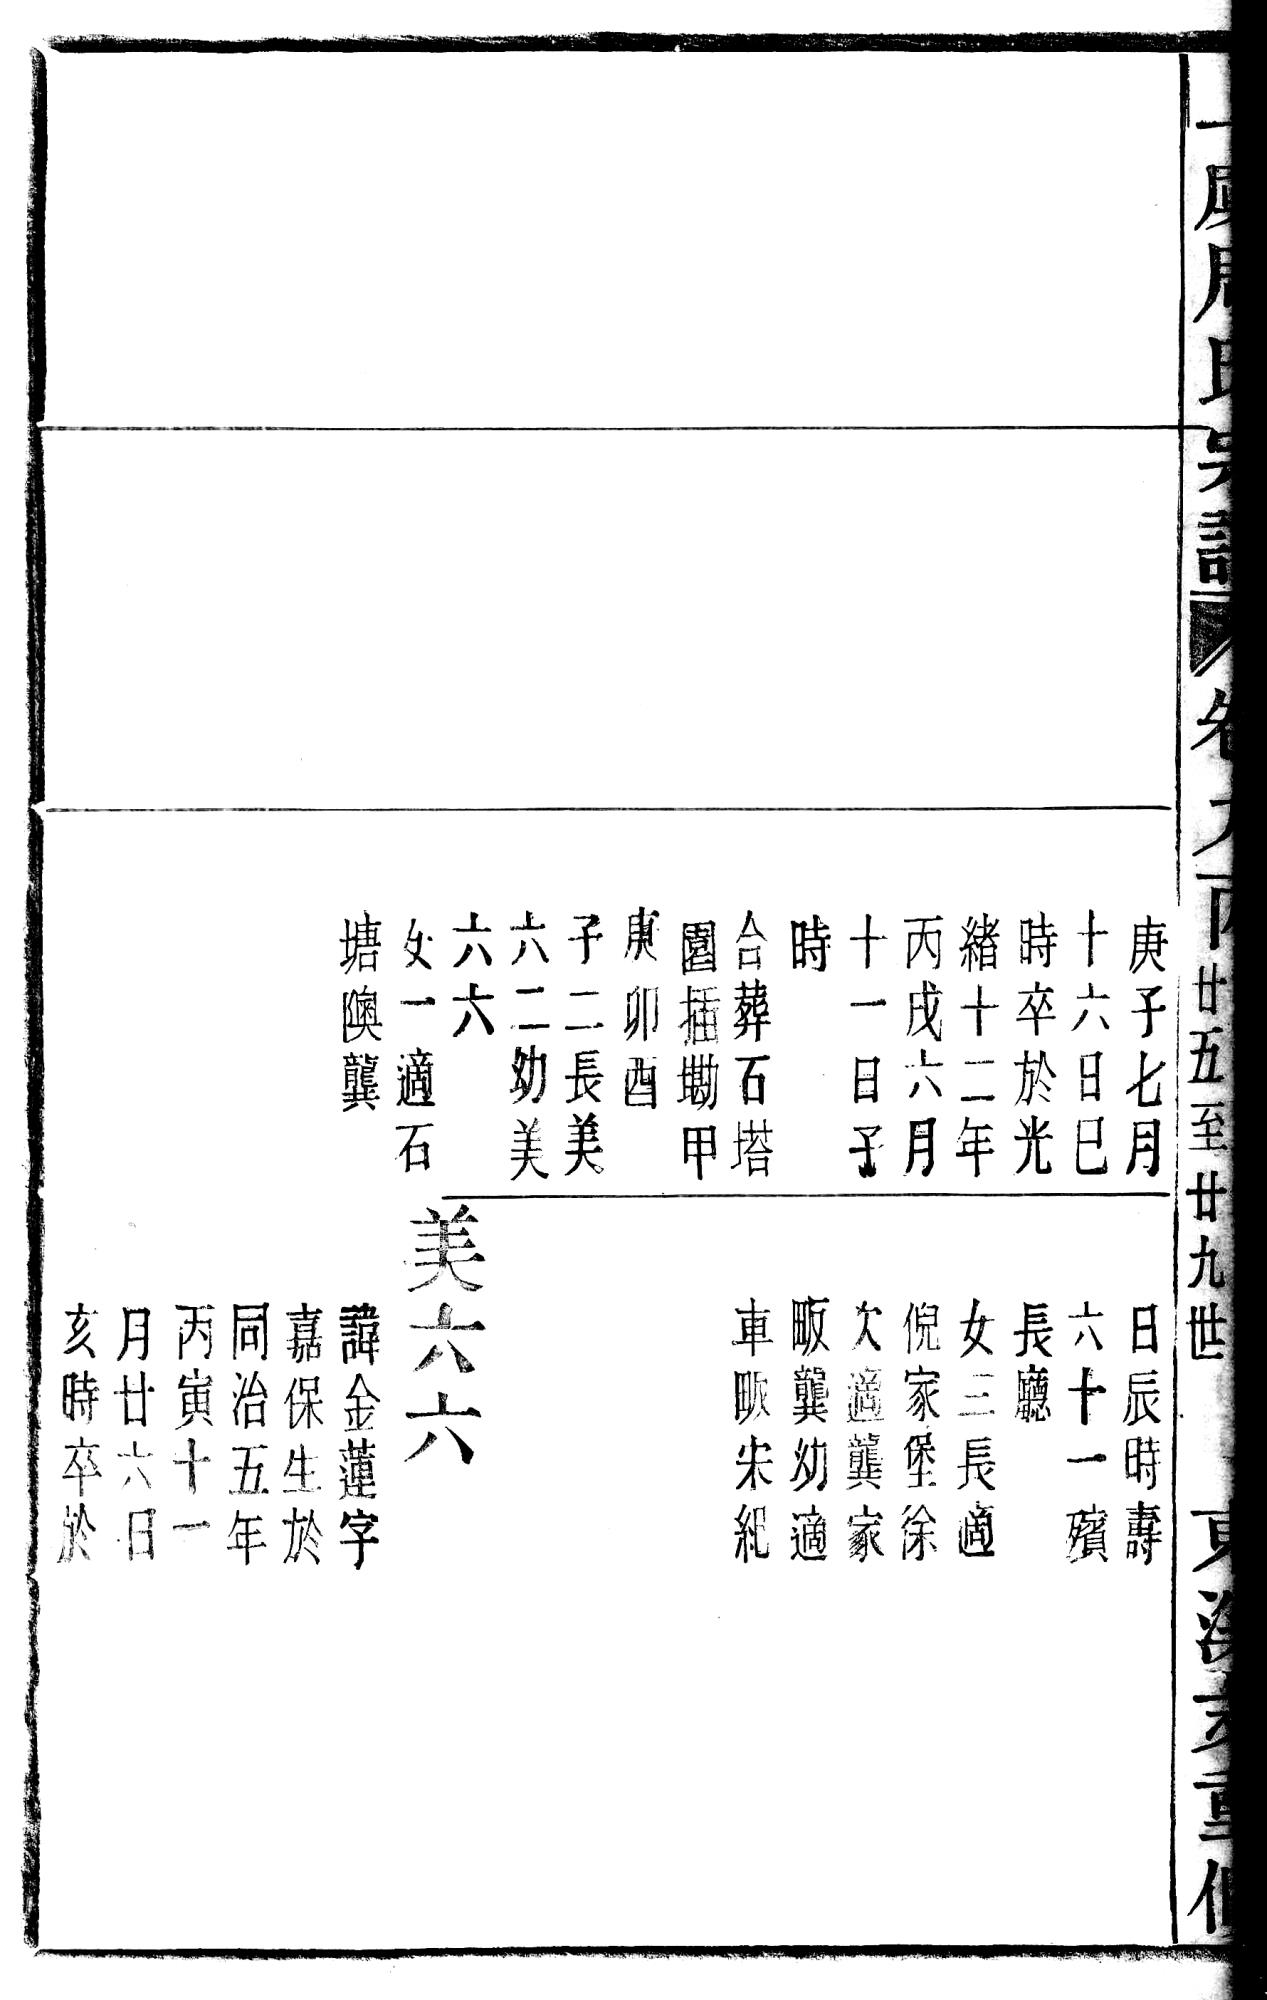 周氏宗譜
卷九
丙
廿五至廿九世
重修
庚子七月
十六日巳
時卒於光
緒十二年
丙戌六月
十一日子
時
合葬石塔
園插勘甲
庚卯酉
子二長美
六二幼美
六六
女一適石
塘隩龔
日辰時壽
六十一殯
長廳
女三長適
倪家堡徐
次適龔家
畈龔幼適
車畈朱紀
美六六
諱金蓮字
嘉保生於
同治五年
丙寅十一
月廿六日
亥時卒於